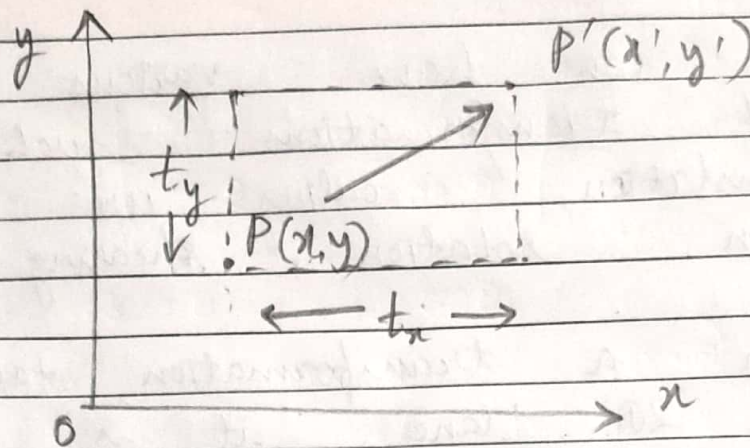 y
P'(x', y')
ty
P(x,y)
tx
x
0